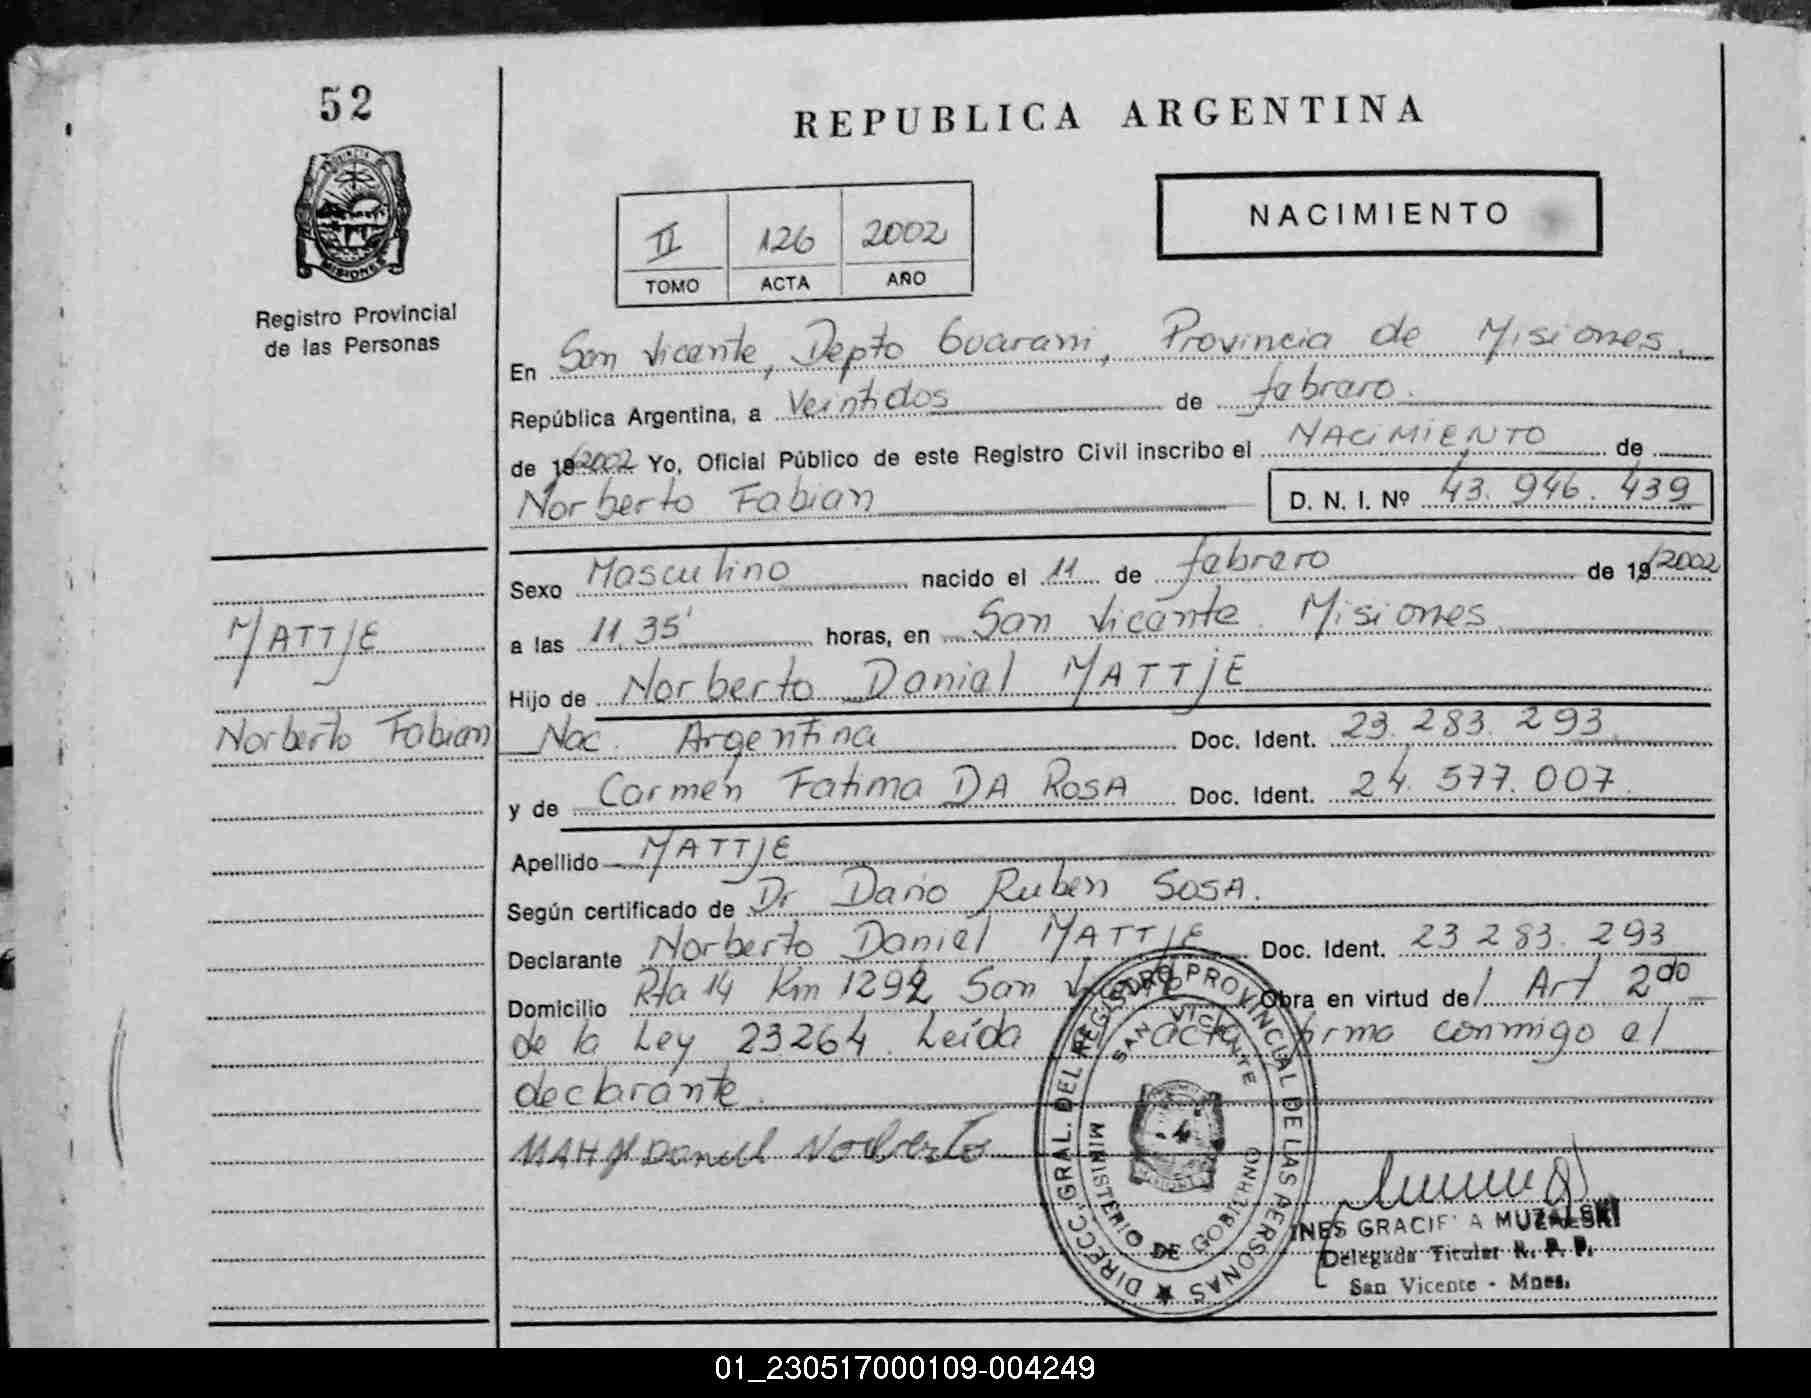 52
REPUBLICA ARGENTINA
PROVINCIA DE
MISIONES
Registro Provincial
de las Personas
II 126 2002
TOMO ACTA AÑO
NACIMIENTO
En San Vicente, Depto Guarani, Provincia de Misiones.
República Argentina, a Veintidos de febrero.
de 19/2002 Yo, Oficial Público de este Registro Civil inscribo el NACIMIENTO de
Norberto Fabian D. N. I. Nº 43.946.439
Sexo Masculino nacido el 11 de febrero de 19/2002
MATTJE
a las 11,35' horas, en San Vicente. Misiones.
Hijo de Norberto Daniel MATTJE
Norberto Fabian
Nac. Argentina Doc. Ident. 23.283.293
y de Carmen Fatima DA ROSA Doc. Ident. 24.577.007.
Apellido MATTJE
Según certificado de Dr Dario Ruben SOSA.
Declarante Norberto Daniel MATTJE Doc. Ident. 23 283. 293
Domicilio Rta 14 Km 1292 San Vicente Obra en virtud del Art 2do
de la Ley 23264. Leída acta firma conmigo el
declarante.
Daniel Norberto
DIRECC. GRAL. DEL REGISTRO PROVINCIAL DE LAS PERSONAS
SAN VICENTE
MINISTERIO DE GOBIERNO
4
INES GRACIELA MUZALSKI
Delegada Titular R. P. P.
San Vicente - Mnes.
01_230517000109-004249